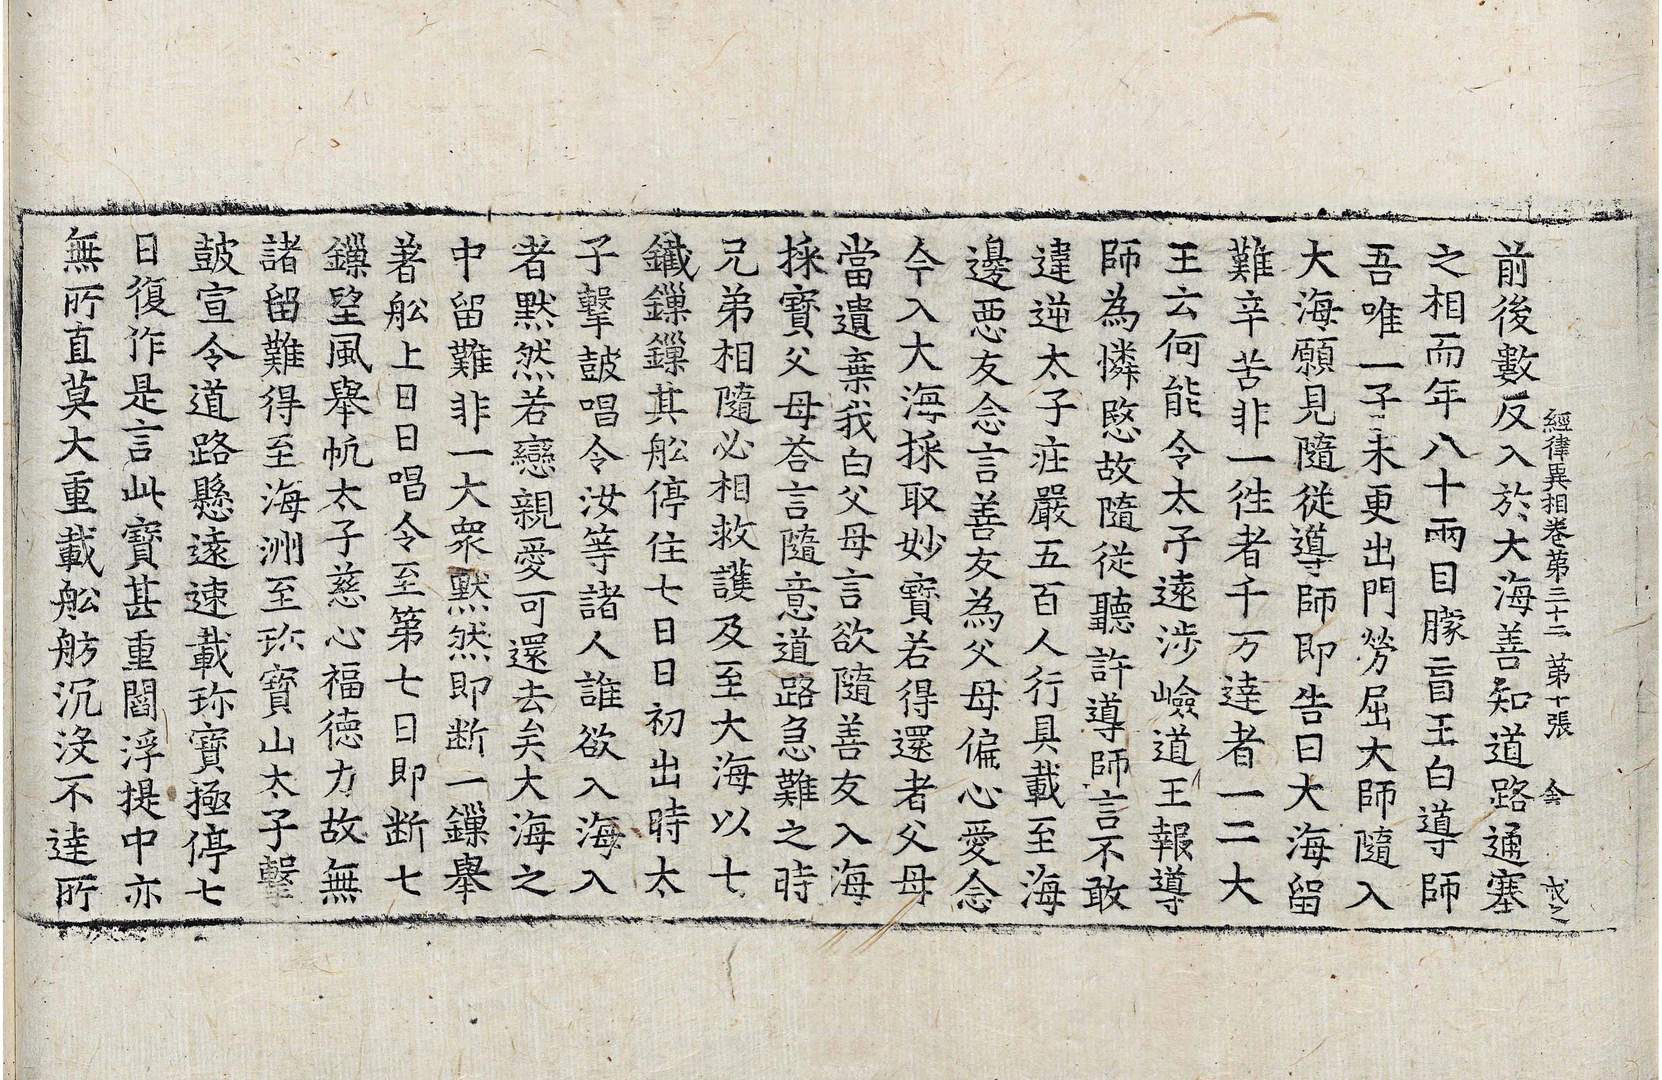 經律異相卷第三十二 第十張 㑹 戒之
前後數反入於大海善知道路通塞
之相而年八十兩目矇盲王白導師
吾唯一子未更出門勞屈大師隨入
大海願見隨從導師即告曰大海留
難辛苦非一徃者千万達者一二大
王云何能令太子遠涉嶮道王報導
師為憐愍故隨從聽許導師言不敢
違逆太子疘嚴五百人行具載至海
邊惡友念言善友為父母偏心愛念
今入大海採取妙寶若得還者父母
當遺棄我白父母言欲隨善友入海
採寶父母荅言隨意道路急難之時
兄弟相隨必相救護及至大海以七
鐵鏁鏁其舩停住七日日初出時太
子擊皷唱令汝等諸人誰欲入海入
者默然若戀親愛可還去矣大海之
中留難非一大衆默然即断一鏁舉
著舩上日日唱令至第七日即断七
鏁望風舉帆太子慈心福德力故無
諸留難得至海洲至珎寶山太子擊
皷宣令道路懸遠速載珎寶極停七
日復作是言此寶甚重閻浮提中亦
無所直莫大重載舩舫沉没不達所